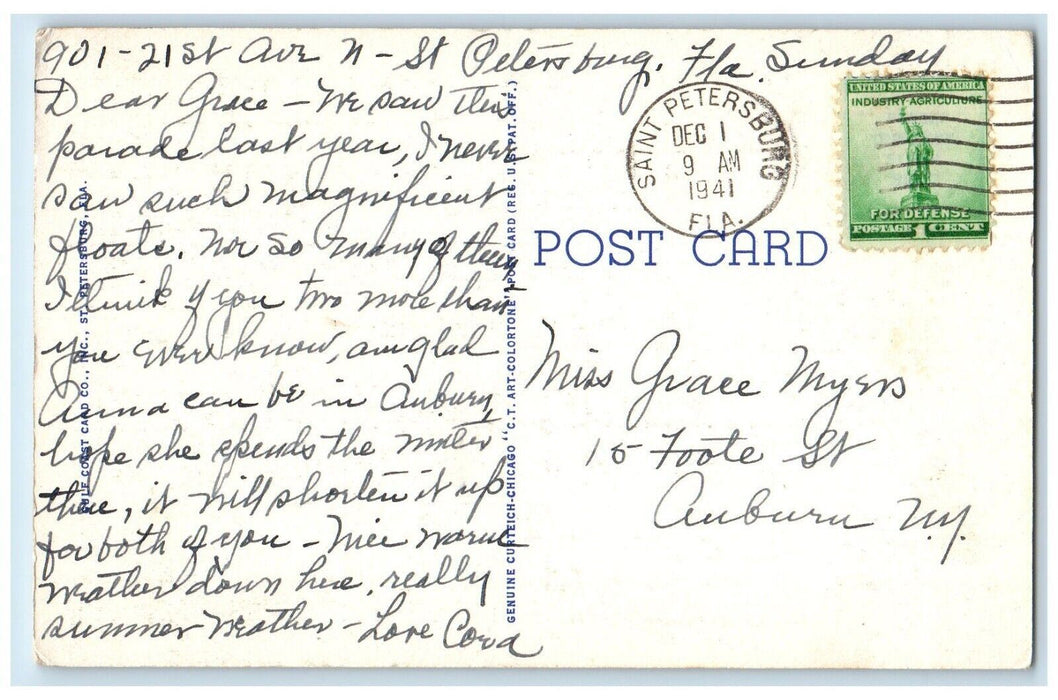 901-21st Ave N - St Petersburg. Fla. Sunday
Dear Grace - We saw this
parade last year, I never
saw such magnificent
floats. Nor so many of them
I think if you two more than
you ever know, am glad
Anna can be in Auburn,
hope she spends the winter
there, it will shorten it up
for both of you - Nice warm
weather down here, really
summer weather - Love Cora
GULF COAST CARD CO., INC., ST. PETERSBURG, FLA.
GENUINE CURTEICH-CHICAGO "C.T. ART-COLORTONE" POST CARD (REG. U.S. PAT. OFF.)
SAINT PETERSBURG
DEC 1
9 AM
1941
FLA.
UNITED STATES OF AMERICA
INDUSTRY-AGRICULTURE
FOR DEFENSE
POSTAGE 1 CENT
POST CARD
Miss Grace Myers
15 Foote St
Auburn N.Y.